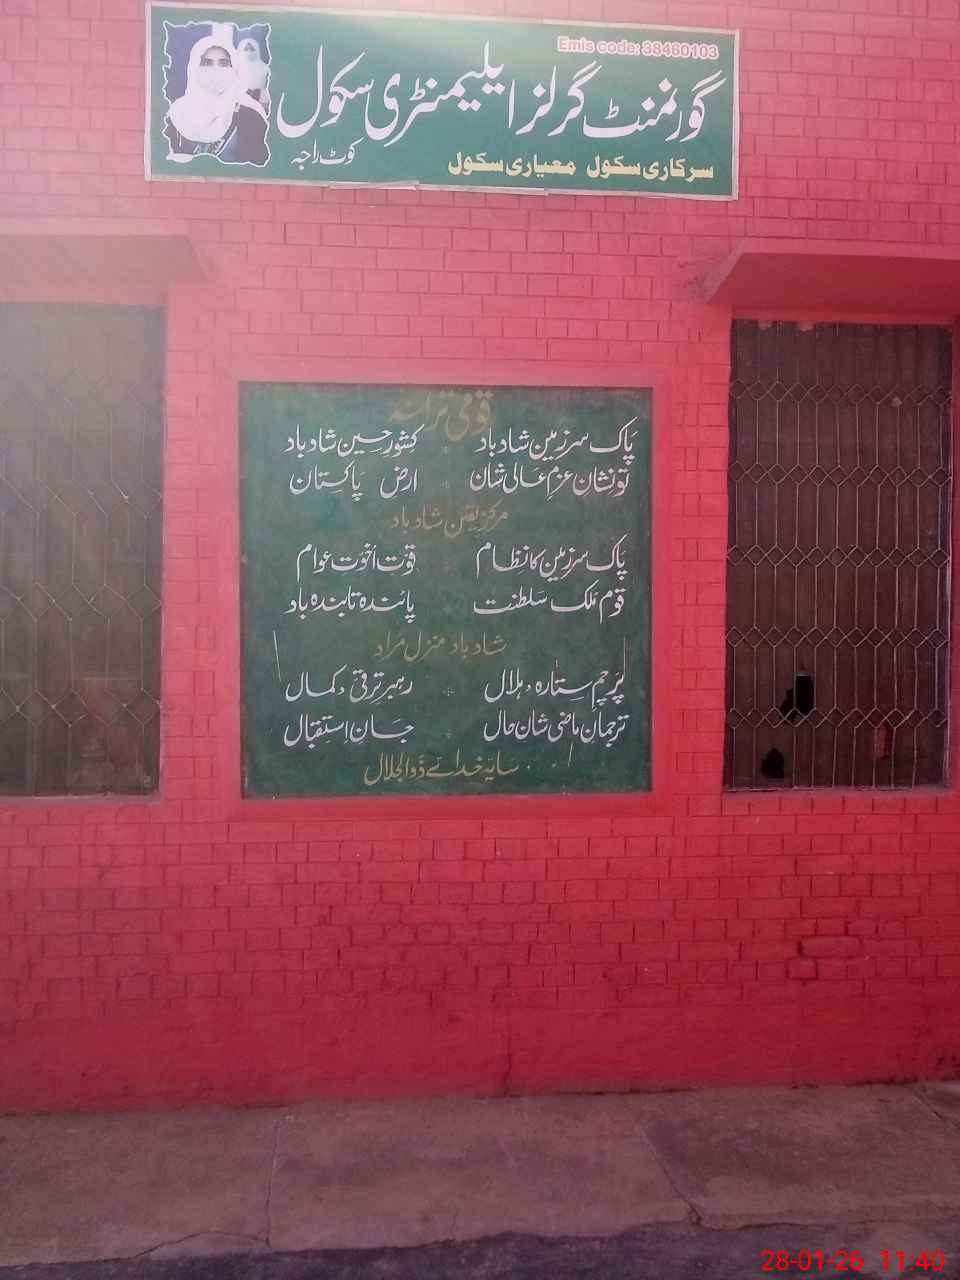 Emis code: 38460103
گورنمنٹ گرلز ایلیمنٹری سکول
کوٹ راجہ
سرکاری سکول معیاری سکول
قومی ترانہ
پاک سرزمین شاد باد کشورِ حسین شاد باد
تو نشانِ عزمِ عالی شان ارض پاکستان
مرکز یقین شاد باد
پاک سرزمین کا نظام قوتِ اخوتِ عوام
قوم ملک سلطنت پائندہ تابندہ باد
شاد باد منزل مراد
پرچم ستارہ و ہلال رہبر ترقی و کمال
ترجمانِ ماضی شانِ حال جانِ استقبال
سایۂ خدائے ذوالجلال
28-01-26 11:40